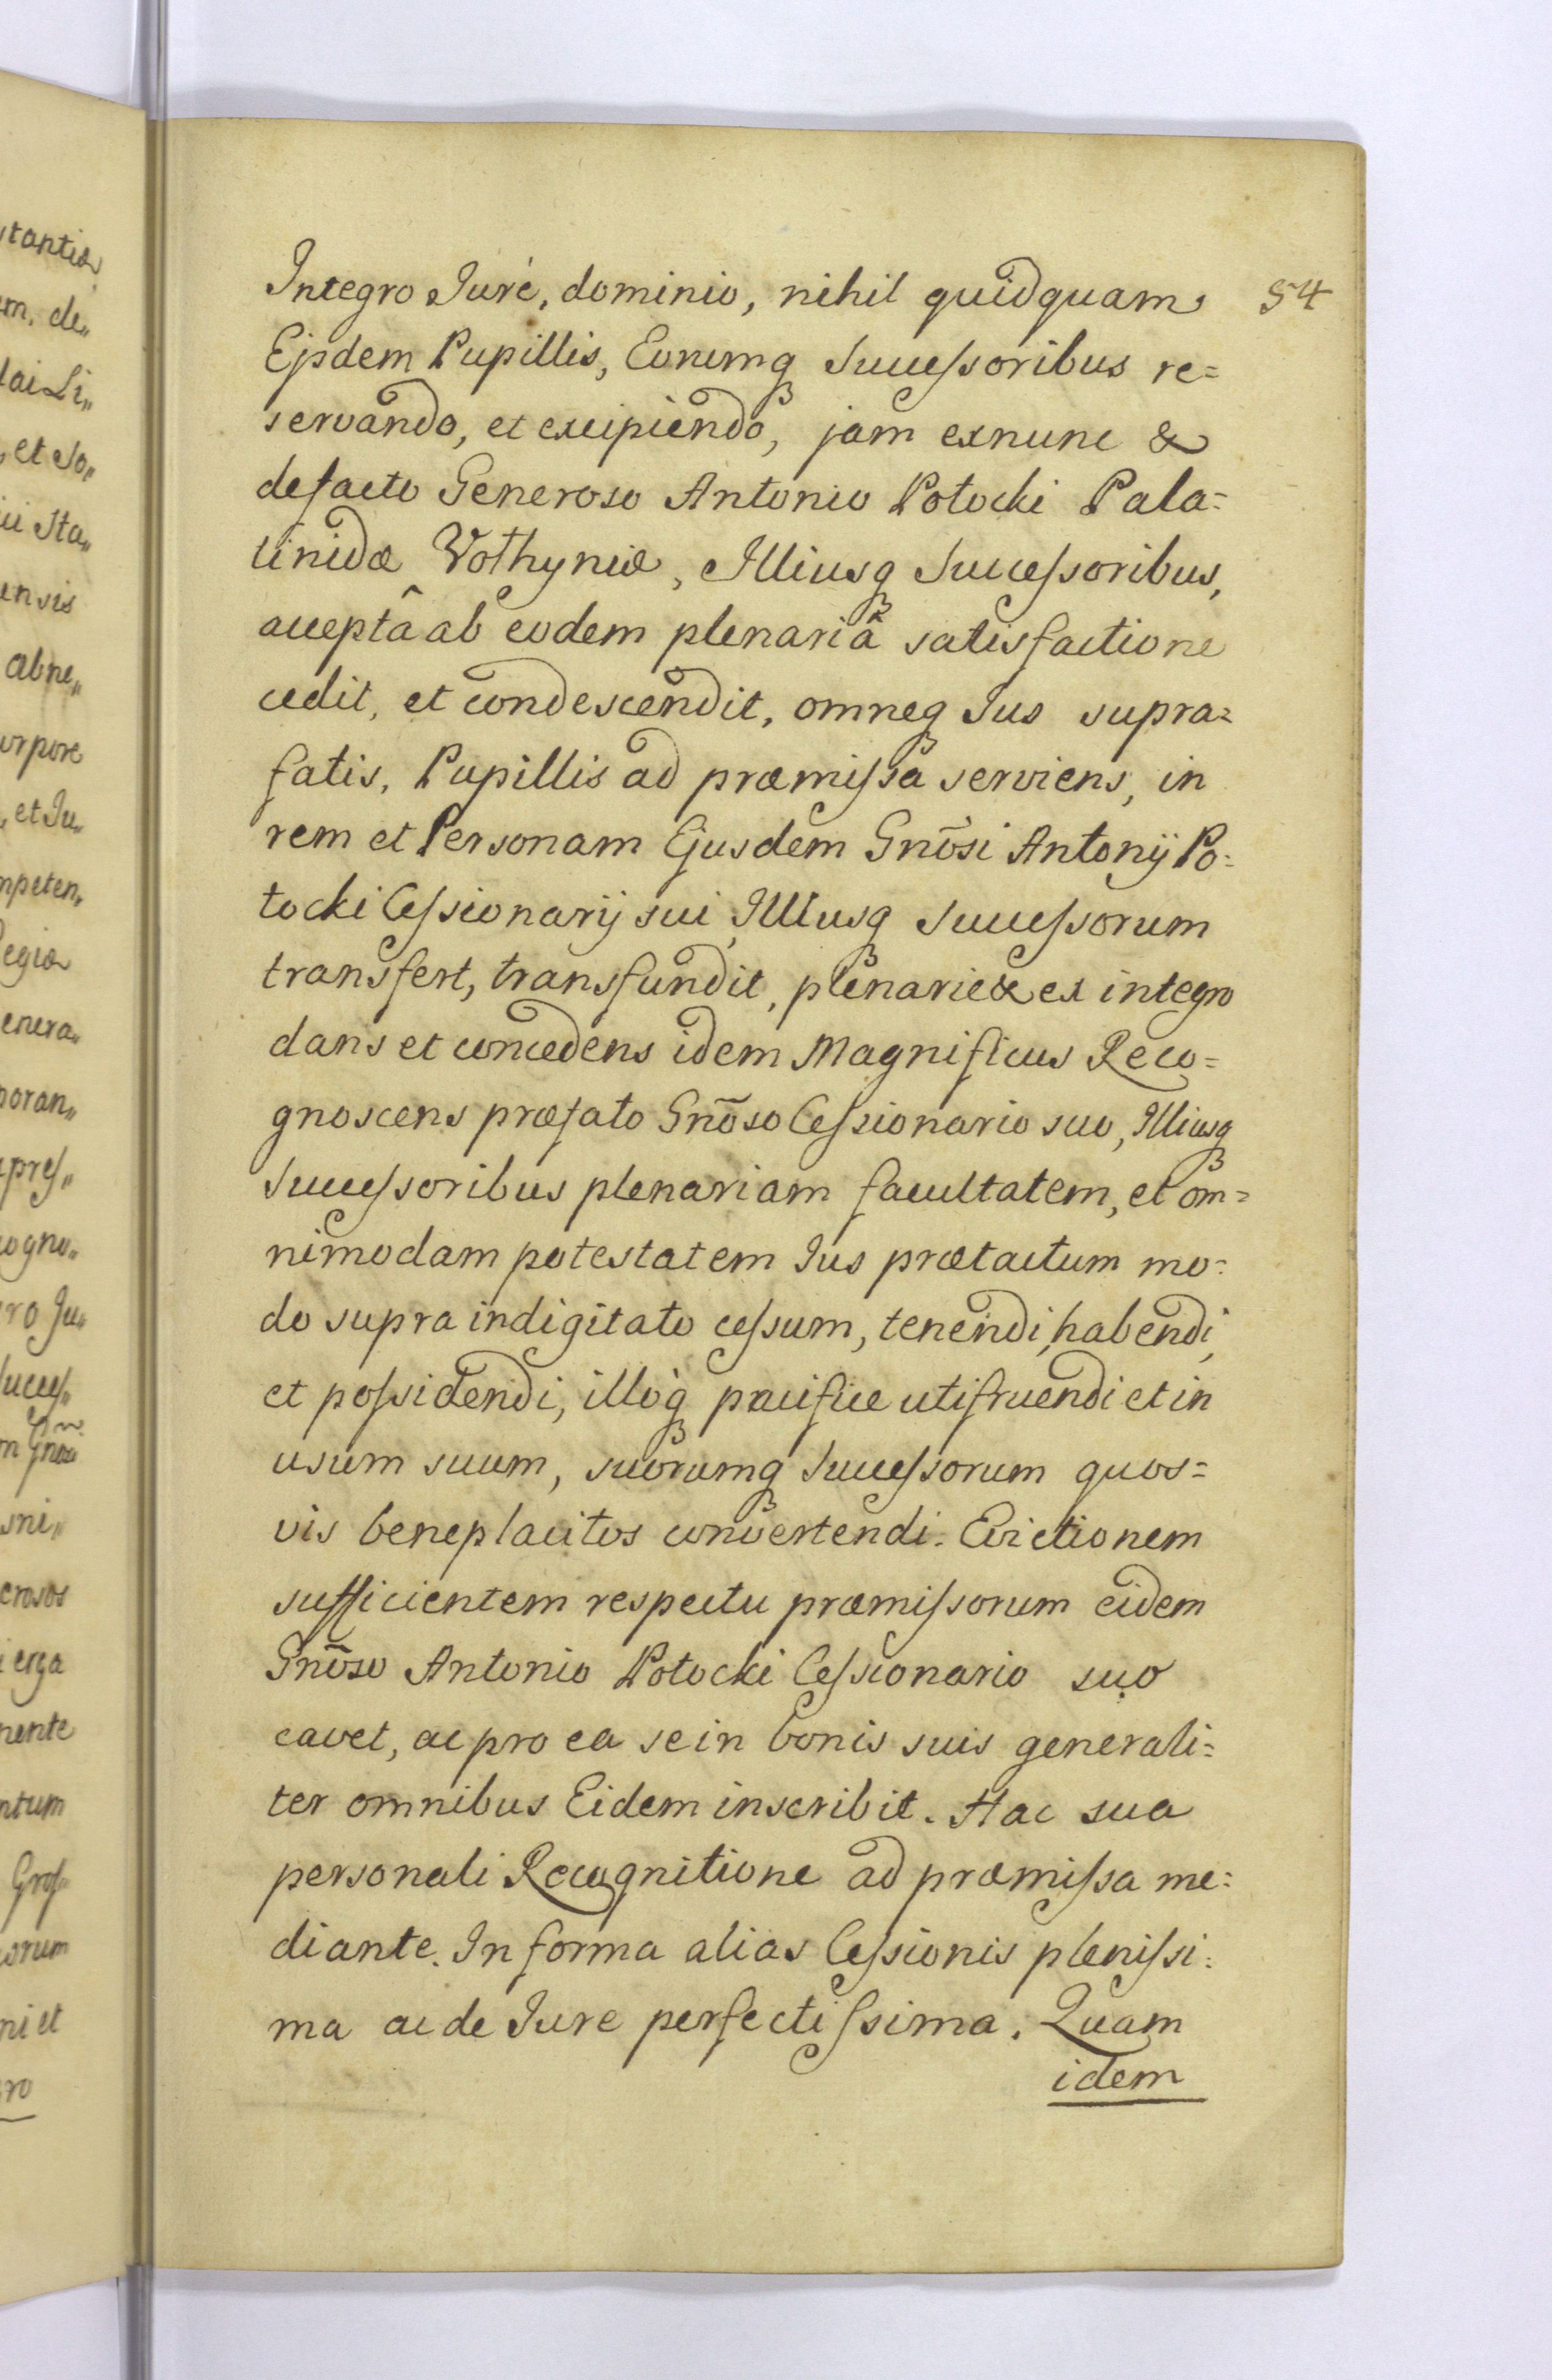 54
Integro Jure, dominio, nihil quidquam
Ejsdem Pupillis, Eorumq Successoribus re=
servando, et excipiendo, jam exnunc &
defacto Generoso Antonio Potocki Pala=
tinidæ Volhyniæ, Illiusq Successoribus,
acceptâ ab eodem plenariâ satisfactione
cedit, et condescendit, omneq Jus supra=
fatis, Pupillis ad præmissa serviens, in
rem et Personam Ejusdem Gnōsi Antonij Po=
tocki Cessionarij sui, Illiusq Successorum
transfert, transfundit, plenarie & ex integro
dans et concedens idem Magnificus Reco=
gnoscens præfato Gnōso Cessionario suo, Illiusq
Successoribus plenariam facultatem, et om=
nimodam potestatem Jus prætactum mo=
do supra indigitato cessum, tenendi, habendi,
et possidendi, illoq pacifice utifruendi et in
usum suum, suorumq Successorum quos=
vis beneplacitos convertendi. Evictionem
sufficientem respectu præmissorum eidem
Gnōso Antonio Potocki Cessionario suo
cavet, ac pro ea se in bonis suis generali=
ter omnibus Eidem inscribit. Hac sua
personali Recognitione ad præmissa me=
diante. In forma alias Cessionis plenissi=
ma ac de Jure perfectissima. Quam
idem